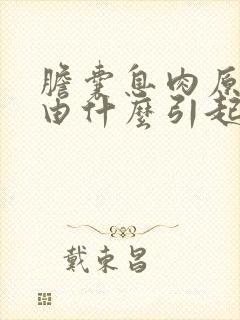 膽囊息肉原
由什麼引起
戴東昌